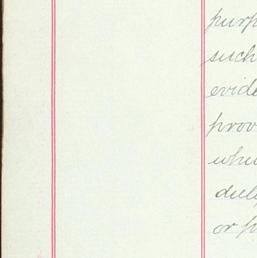 purp
such
evide
prov
whi
duly
or p